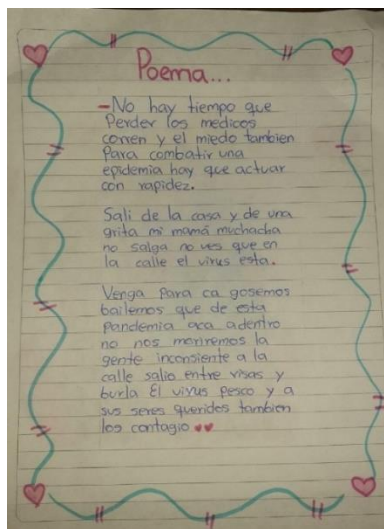 Poema...
-No hay tiempo que
Perder los medicos
corren y el miedo tambien
Para combatir una
epidemia hay que actuar
con rapidez.
Sali de la casa y de una
grita mi mamá muchacha
no salga no ves que en
la calle el virus esta.
Venga Para ca gosemos
bailemos que de esta
Pandemia aca adentro
no nos moriremos la
gente inconsiente a la
calle salio entre risas y
burla El virus pesco y a
sus seres queridos tambien
los contagio